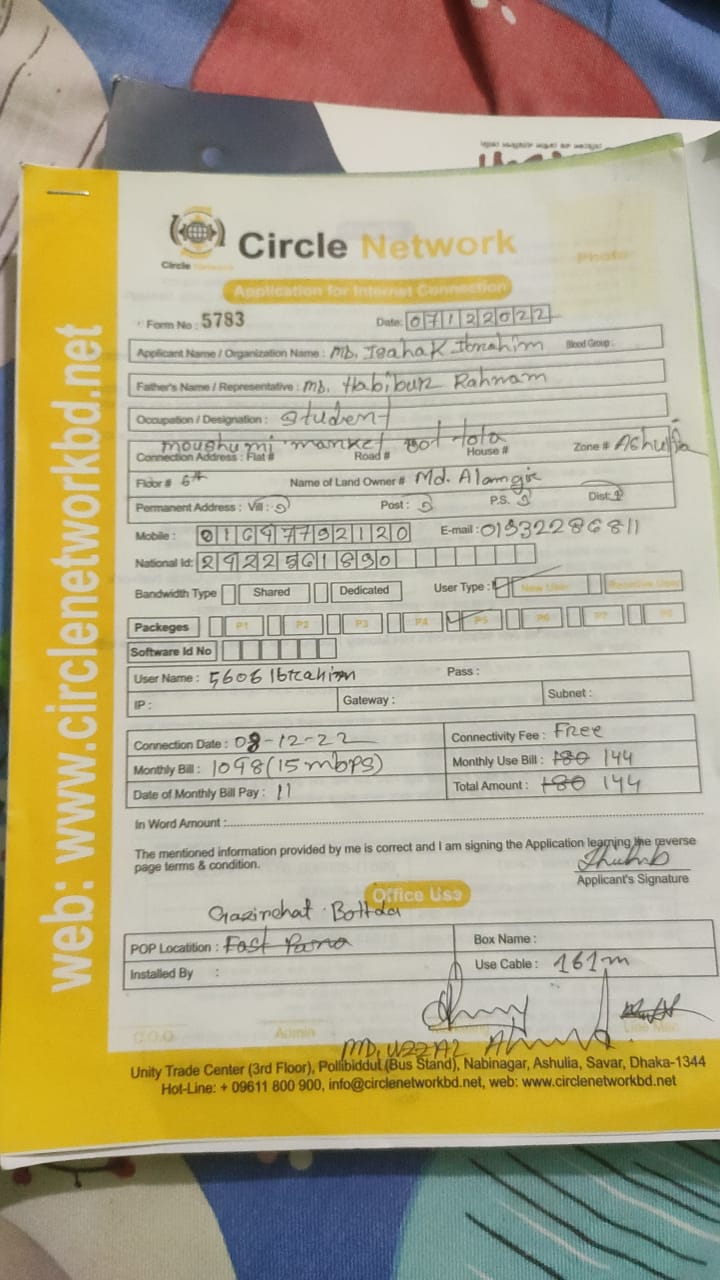 Circle Network
Circle
Photo
Application for Internet Connection
Form No : 5783
Date: 07122022
Applicant Name / Organization Name : MD. Isahak Ibrahim Blood Group :
Father's Name / Representative : MD. Habibur Rahnam
Occupation / Designation : Student
moushumi market bot tola
Connection Address : Flat # Road # House # Zone # Ashulia
Floor # 6th Name of Land Owner # Md. Alamgir
Permanent Address : Vill : Post : P.S. Dist :
Mobile : 01697792120 E-mail : 01332286811
National Id: 2922561890
Bandwidth Type Shared Dedicated User Type : New User
Packeges P1 P2 P3 P4 P5 P6 P7 P8
Software Id No
User Name : 5606 Ibrahim Pass :
IP : Gateway : Subnet :
Connection Date : 08-12-22 Connectivity Fee : Free
Monthly Bill : 1098 (15 mbps) Monthly Use Bill : 180 144
Date of Monthly Bill Pay : 11 Total Amount : 180 144
In Word Amount :
The mentioned information provided by me is correct and I am signing the Application learning the reverse
page terms & condition.
Applicant's Signature
Office Use
Gazirchat Bottola
POP Locatition : Box Name :
Installed By : Use Cable : 161m
C.O.O Admin Line Man
MD. UZZAL
Unity Trade Center (3rd Floor), Pollibiddut (Bus Stand), Nabinagar, Ashulia, Savar, Dhaka-1344
Hot-Line: + 09611 800 900, info@circlenetworkbd.net, web: www.circlenetworkbd.net
web: www.circlenetworkbd.net